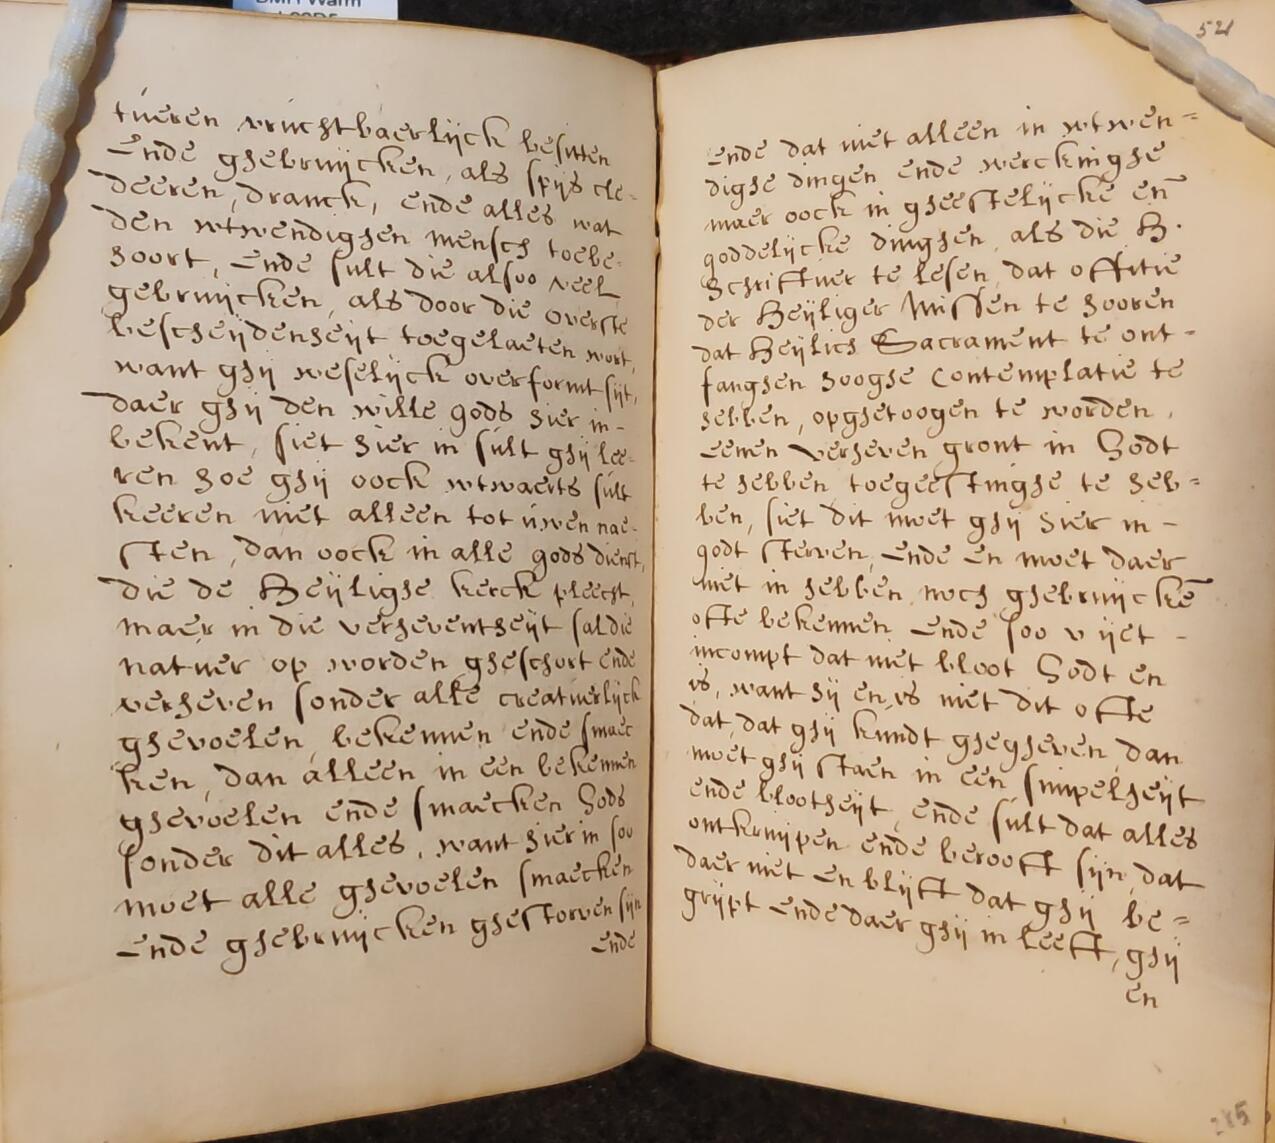 BMH Warm
tueren vruchtbaerlijck besitten
Ende ghebruijcken, als spijs cle-
deeren, dranck, ende alles wat
den wtwendighen mensch toebe-
hoort, Ende sult die alsoo veel
gebruijcken, als door die overste
bescheijdenheijt toegelaeten wort,
want ghij weselijck overformt sijt,
daer ghij den wille gods hier in-
bekent, siet hier in sult ghij lee-
ren hoe ghij oock wtwaerts sult
keeren niet alleen tot uwen nae-
sten, dan oock in alle gods dienst,
die de Heijlighe kerck pleecht,
maer in die verheventheijt sal die
natuer op worden gheschort ende
verheven sonder alle creatuerlijck
ghevoelen, bekennen ende smaec
ken, dan alleen in een bekennen
ghevoelen ende smaecken Gods
sonder dit alles, want hier in sou
moet alle ghevoelen smaecken
Ende ghebruijcken ghestorven sijn
ende
521
Ende dat niet alleen in wtwen-
dighe dingen ende werckinghe
maer oock in gheestelijcke en̄
goddelijcke dinghen, als die H.
Schriftuer te lesen, dat offitie
der Heijliger Missen te hooren
dat Heijlich Sacrament te ont-
fanghen hooghe Contemplatie te
hebben, opghetoogen te worden,
eenen verheven gront in Godt
te hebben toegeestinghe te heb-
ben, siet dit moet ghij hier in-
godt sterven, Ende en moet daer
niet in hebben noch ghebruijckē
ofte bekennen Ende soo v ijet -
incompt dat niet bloot Godt en
is, want hij en is niet dit ofte
dat, dat ghij kundt ghegheven, dan
moet ghij staen in een simpelheijt
ende blootheijt, ende sult dat alles
ontkruijpen ende berooft sijn, dat
daer niet en blijft dat ghij be-
grijpt Ende daer ghij in leeft, ghij
en
285